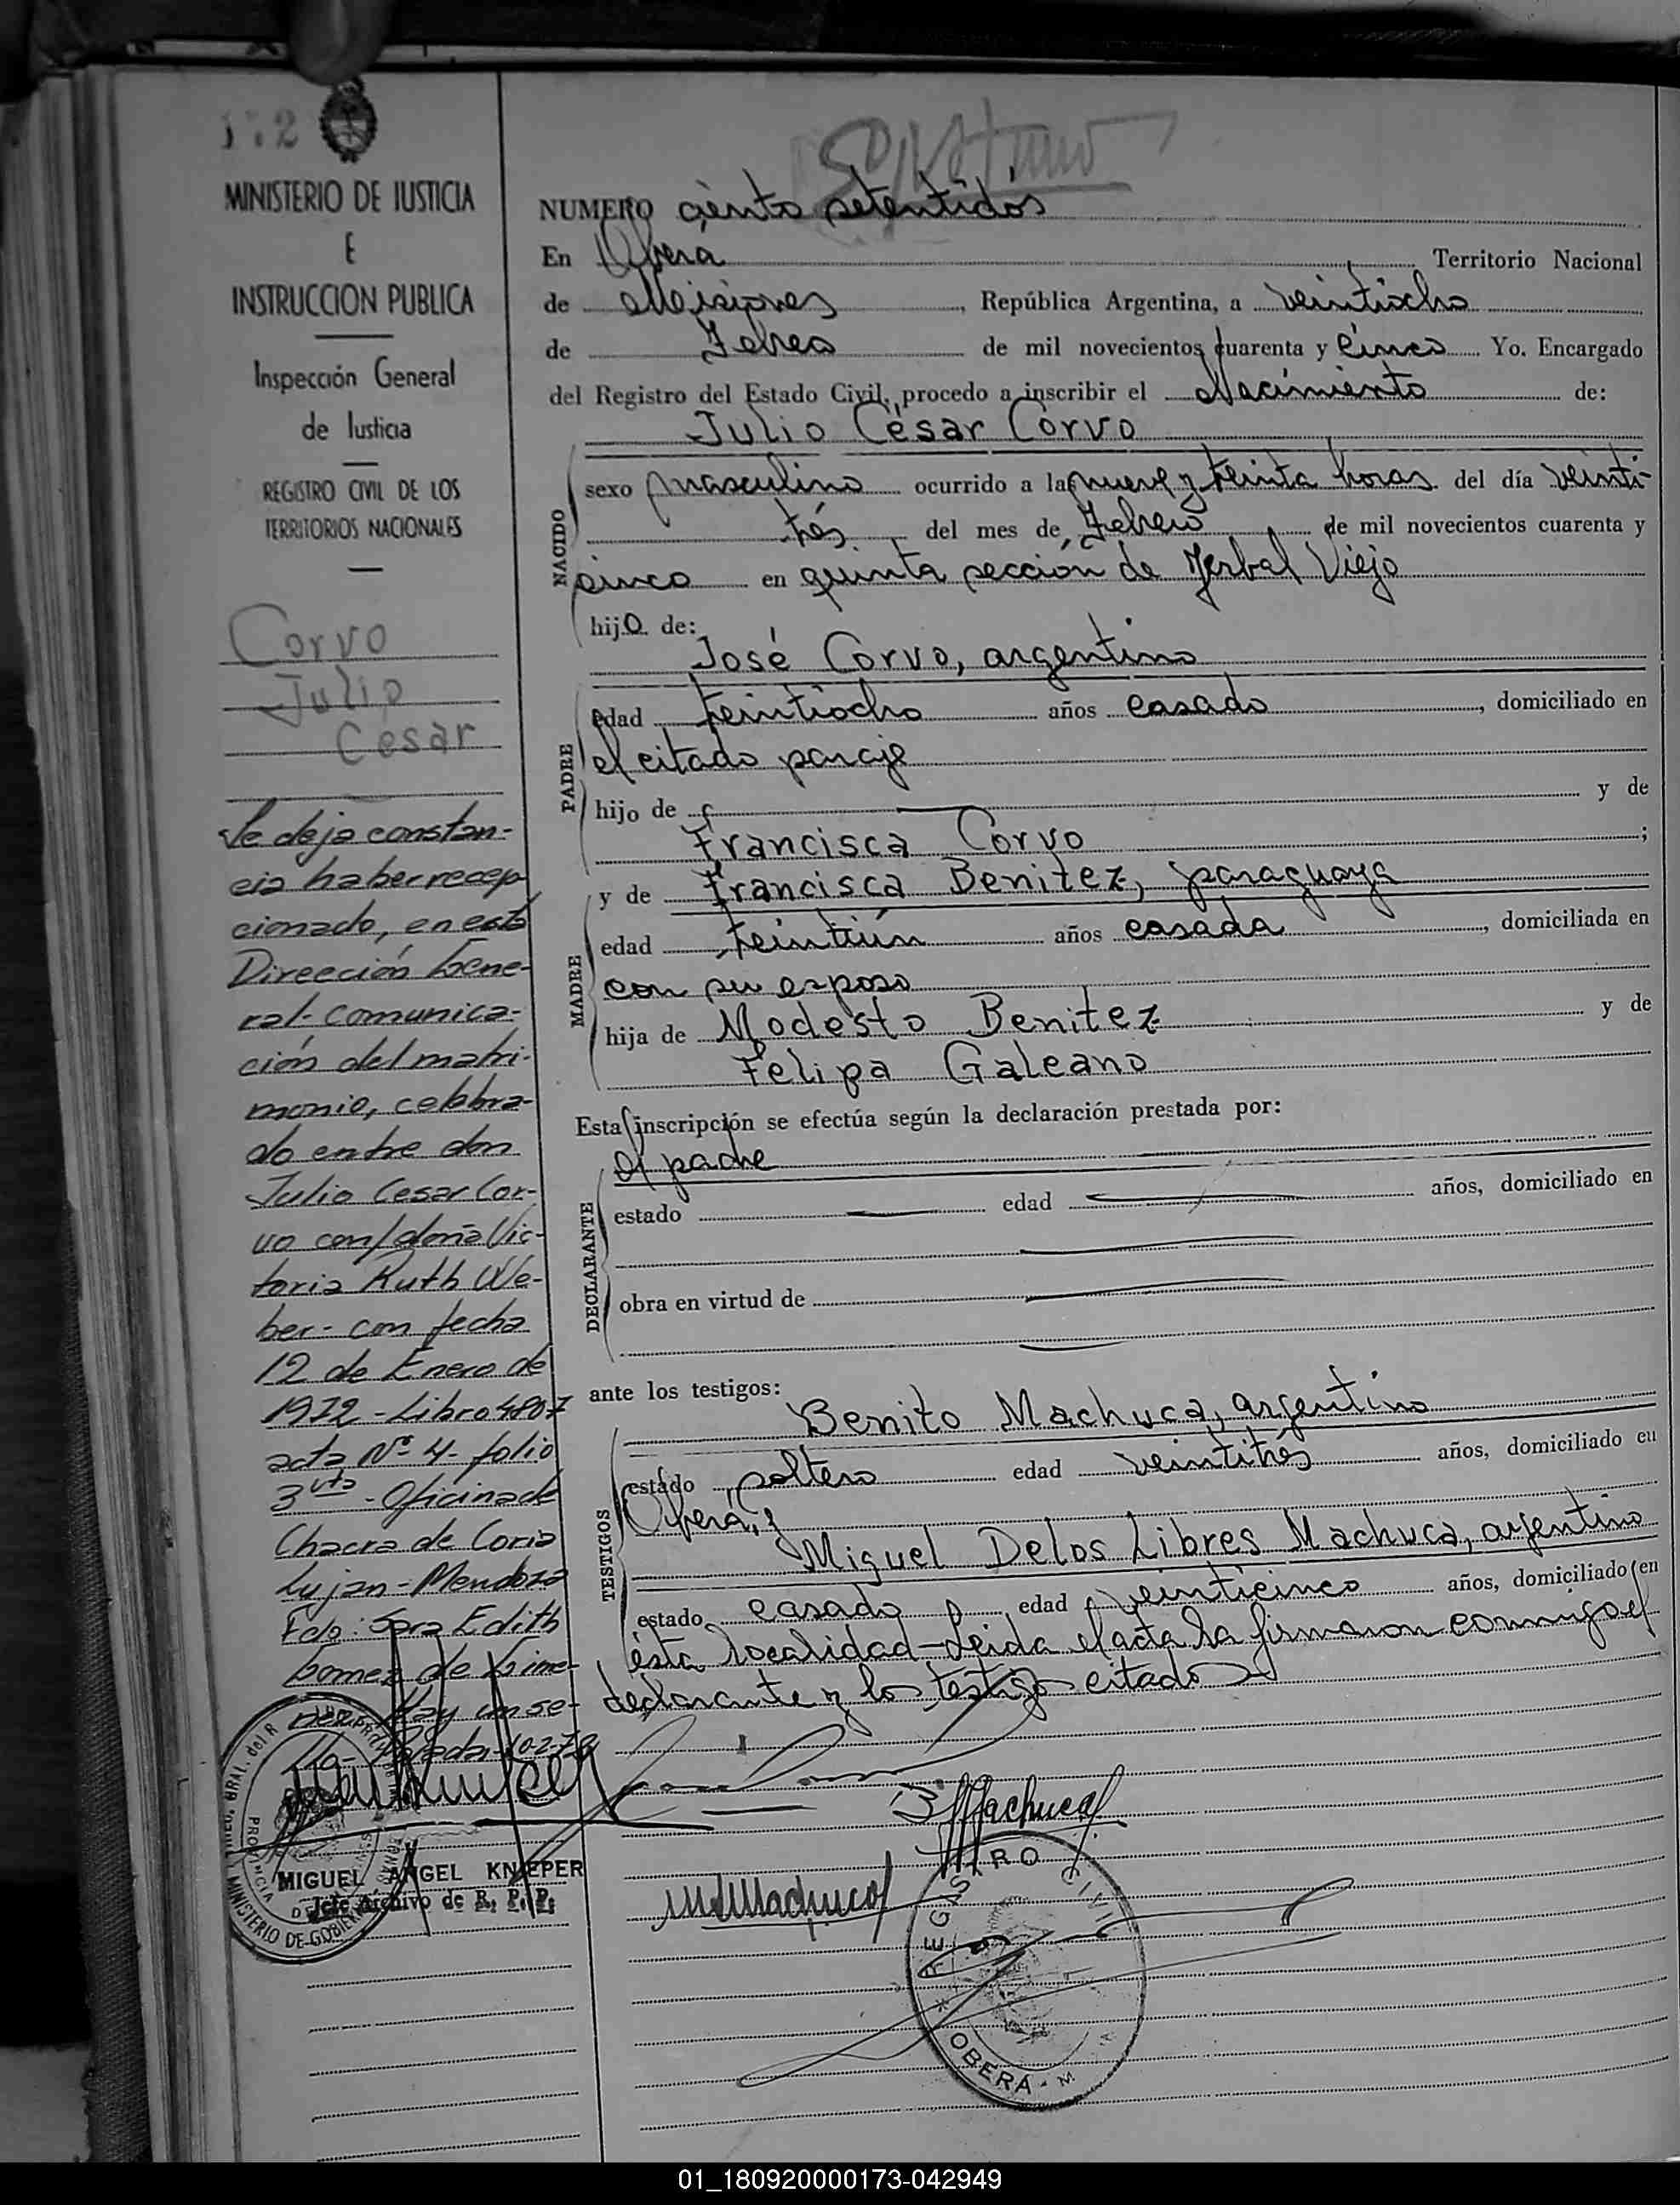 172
MINISTERIO DE JUSTICIA
E
INSTRUCCION PUBLICA
Inspección General
de Justicia
REGISTRO CIVIL DE LOS
TERRITORIOS NACIONALES
Corvo
Julio
Cesar
Se deja constan-
cia haber recep
cionado, en esta
Dirección Gene-
ral- comunica-
ción del matri-
monio, celebra-
do entre don
Julio Cesar Cor-
vo con/doña Vic-
toria Ruth We-
ber- con fecha
12 de Enero de
1972 - Libro 4807
acta Nº 4- folio
3 vto - Oficina de
Chacra de Coria
Lujan - Mendoza
Fdo: Sara Edith
Gomez de
Hay un se-
llo- Posadas 10-2-72
MIGUEL ANGEL KNEPER
Jefe Archivo de R. P. P.
NUMERO ciento setentidós
En Oberá Territorio Nacional
de Misiones, República Argentina, a veintiocho
de Febrero de mil novecientos cuarenta y cinco Yo. Encargado
del Registro del Estado Civil, procedo a inscribir el Nacimiento de:
Julio César Corvo
NACIDO
sexo masculino ocurrido a las nueve y treinta horas del día veinti-
trés del mes de Febrero de mil novecientos cuarenta y
cinco en quinta sección de Yerbal Viejo
hijo de:
José Corvo, argentino
PADRE
edad treintiocho años casado, domiciliado en
el citado paraje
hijo de y de
Francisca Corvo;
y de Francisca Benitez, paraguaya
MADRE
edad treintiún años casada, domiciliada en
con su esposo
hija de Modesto Benitez y de
Felipa Galeano
Esta inscripción se efectúa según la declaración prestada por:
DECLARANTE
el padre
estado edad años, domiciliado en
obra en virtud de
ante los testigos:
Benito Machuca, argentino
TESTIGOS
estado soltero edad veintitrés años, domiciliado en
Oberá, y
Miguel Delos Libres Machuca, argentino
estado casado edad veinticinco años, domiciliado en
ésta localidad - Leida el acta la firmaron conmigo el
declarante y los testigos citados
B Machuca
M Machuca
REGISTRO CIVIL
OBERA - M
01_180920000173-042949